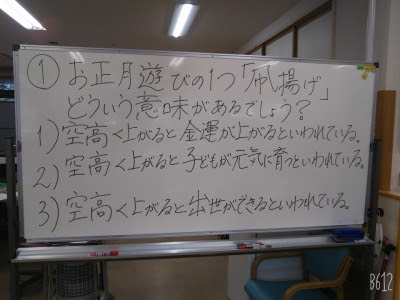 ① お正月遊びの1つ「凧揚げ」
どういう意味があるでしょう？
1) 空高く上がると金運が上がるといわれている。
2) 空高く上がると子どもが元気に育つといわれている。
3) 空高く上がると出世ができるといわれている。
B612